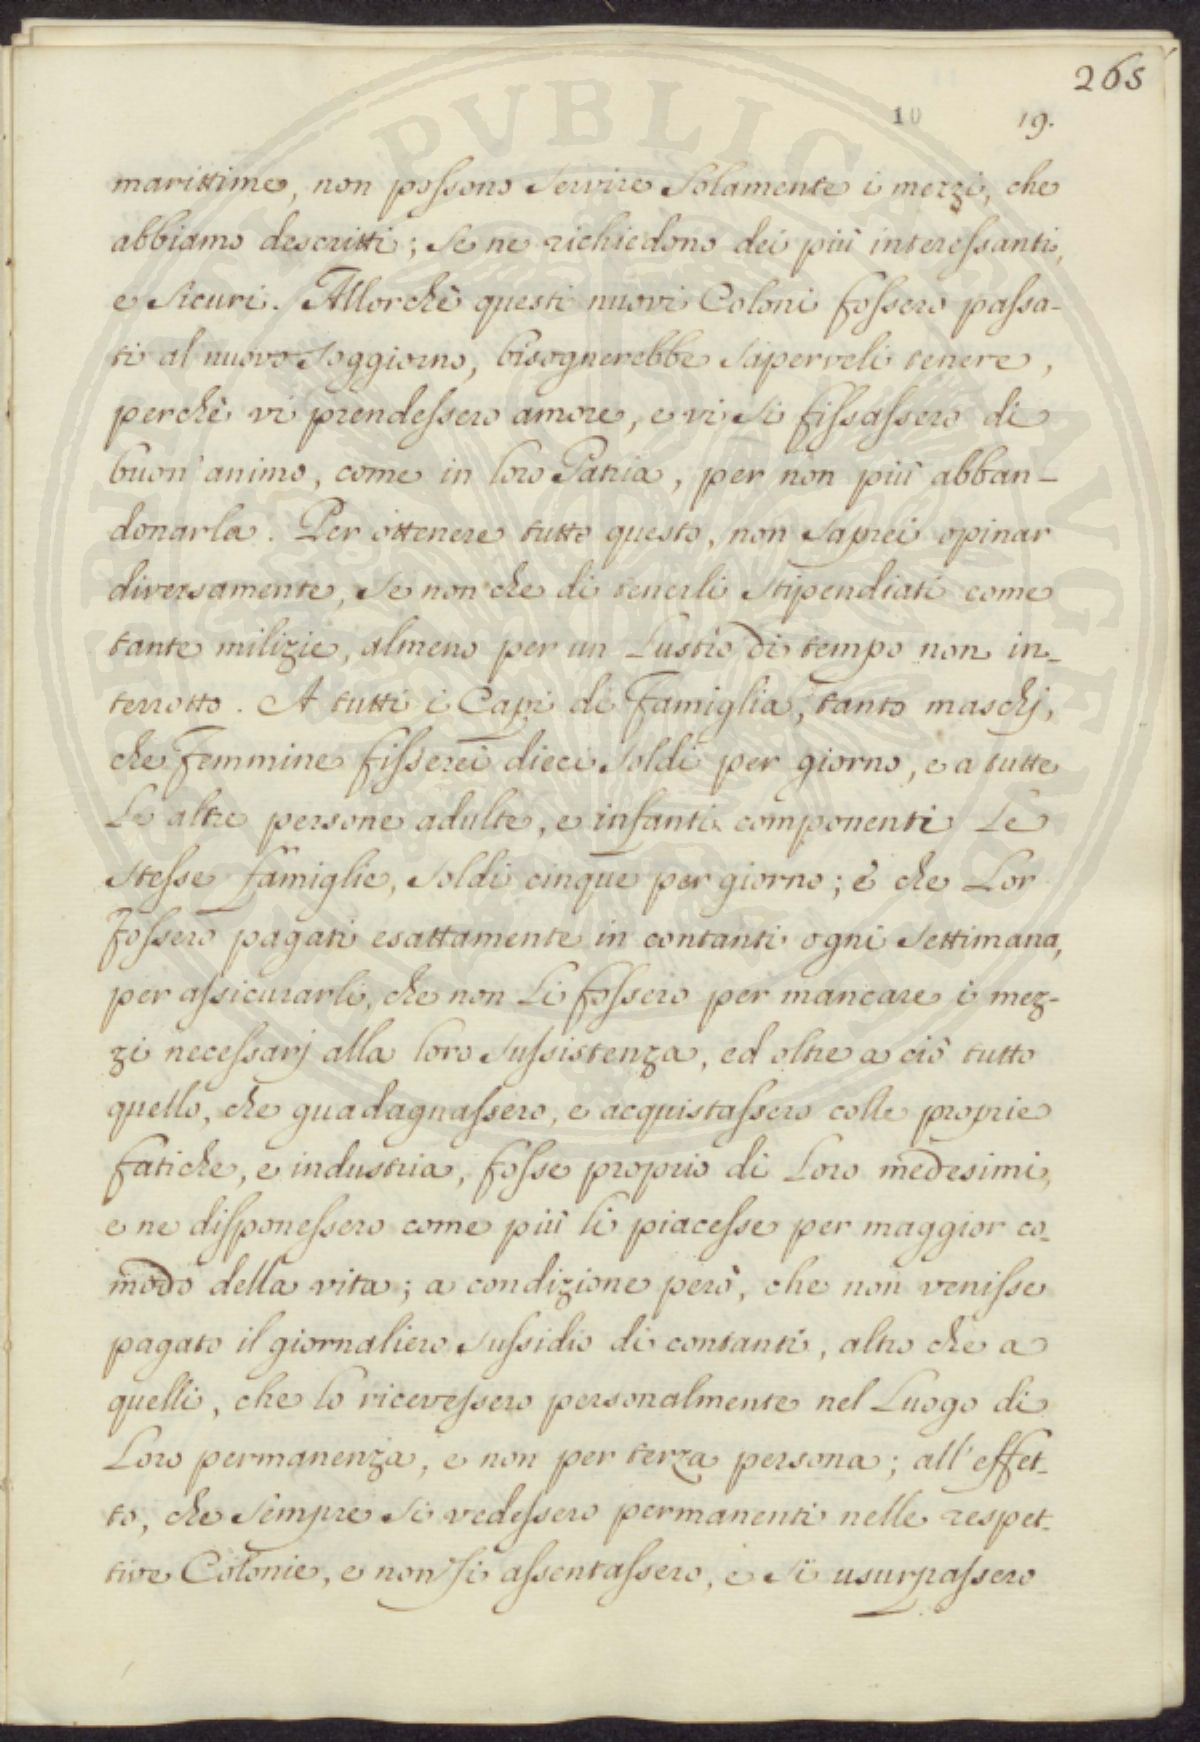 265
10 19.
marittime, non possono servire solamente i mezzi, che
abbiamo descritti; se ne richiedono dei più interessanti,
e sicuri. Allorchè questi nuovi Coloni fossero passa-
ti al nuovo soggiorno, bisognerebbe saperveli tenere,
perchè vi prendessero amore, e vi si fissassero di
buon' animo, come in loro Patria, per non più abban-
donarla. Per ottenere tutto questo, non saprei opinar
diversamente, se non che di tenerli stipendiati come
tante milizie, almeno per un Lustro di tempo non in-
terrotto. A tutti i Capi di Famiglia, tanto maschj,
che Femmine fisserei dieci soldi per giorno, e a tutte
Le altre persone adulte, e infanti componenti Le
stesse famiglie, soldi cinque per giorno; e che Lor
fossero pagati esattamente in contanti ogni settimana,
per assicurarli, che non Li fossero per mancare i mez-
zi necessarj alla loro sussistenza, ed oltre a ciò tutto
quello, che guadagnassero, e acquistassero colle proprie
fatiche, e industria, fosse proprio di Loro medesimi,
e ne disponessero come più li piacesse per maggior co-
modo della vita; a condizione però, che non venisse
pagato il giornaliero sussidio di contanti, altro che a
quelli, che lo ricevessero personalmente nel Luogo di
Loro permanenza, e non per terza persona; all' effet-
to, che sempre si vedessero permanenti nelle respet-
tive Colonie, e non si assentassero, e si usurpassero
PVBLICAE